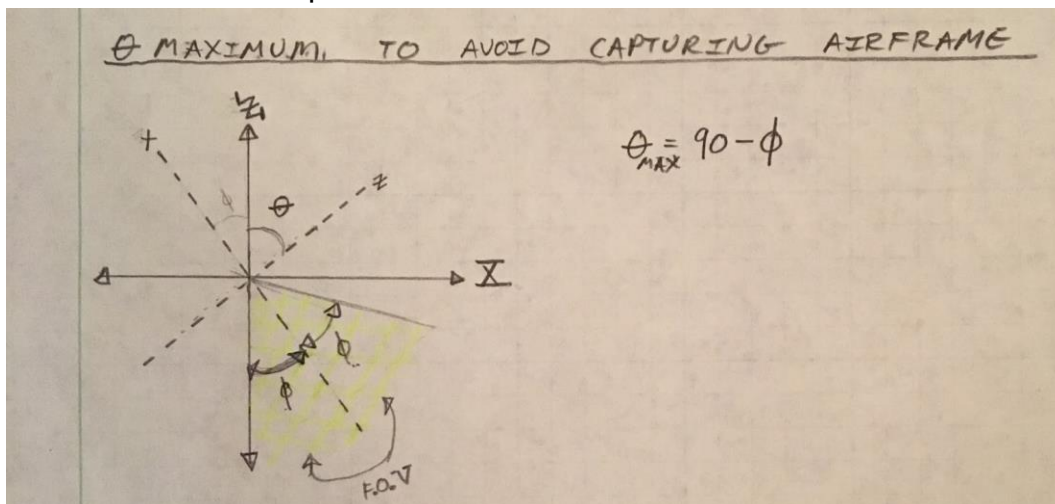 θ MAXIMUM. TO AVOID CAPTURING AIRFRAME
Z
θ MAX = 90 - ϕ
ϕ
θ
z
X
ϕ
ϕ
F.O.V